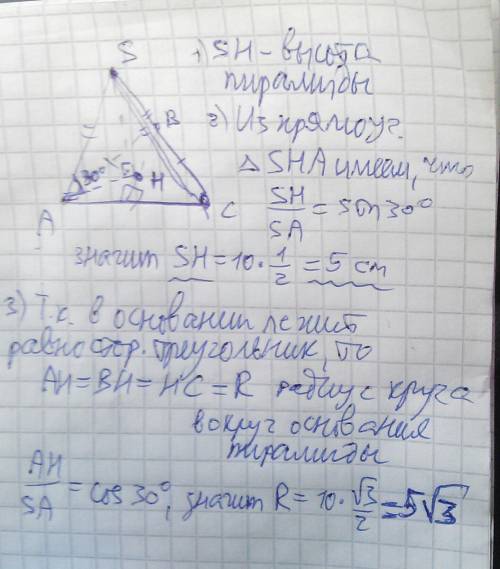 S
1) SH - высота
пирамиды
B
2) Из прямоуг.
△ SHA имеем, что
30°
H
A
C
SH/SA = sin 30°
значит SH = 10 · 1/2 = 5 см
3) Т.к. в основании лежит
равностор. треугольник, то
AH = BH = HC = R радиус круга
вокруг основания
пирамиды
AH/SA = cos 30°, значит R = 10 · √3/2 = 5√3